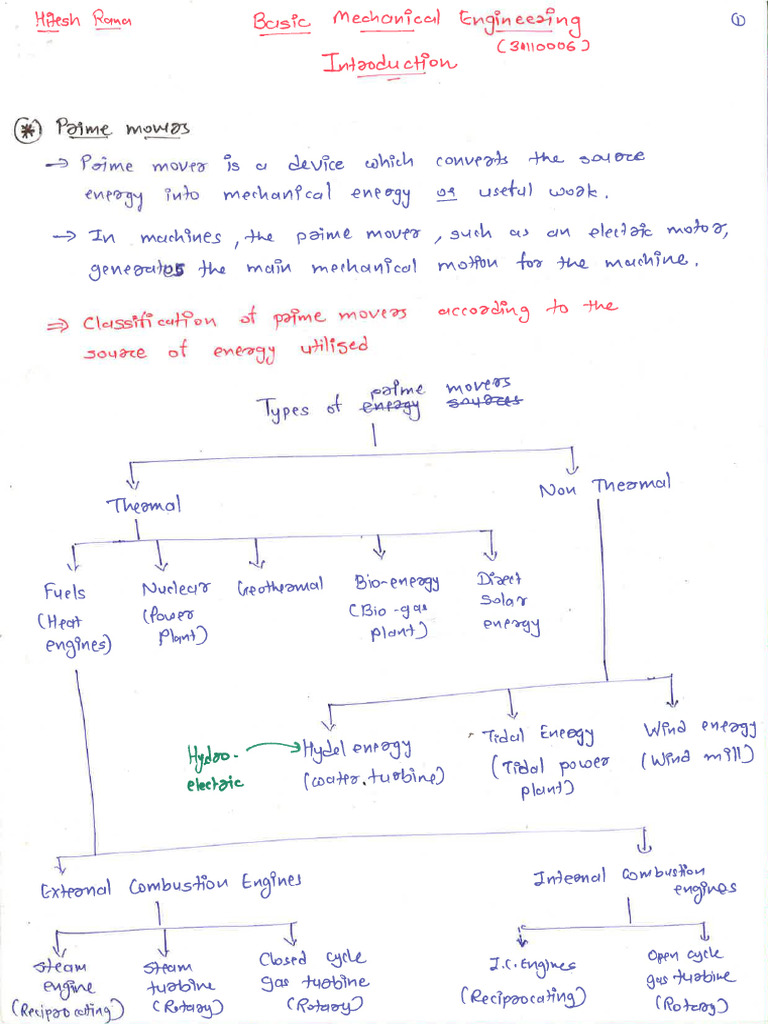 Hitesh Rama Basic Mechanical Engineering 1
(3110006)
Introduction
* Prime movers
→ Prime mover is a device which converts the source
energy into mechanical energy or useful work.
→ In machines, the prime mover, such as an electric motor,
generates the main mechanical motion for the machine.
⇒ Classification of prime movers according to the
source of energy utilised
prime movers
Types of energy sources
Thermal
Non Thermal
Fuels
(Heat
engines)
Nuclear
(Power
Plant)
Geothermal
Bio-energy
(Bio-gas
plant)
Direct
Solar
energy
Hydro-
electric
Hydel energy
(water turbine)
Tidal Energy
(Tidal power
plant)
Wind energy
(Wind mill)
External Combustion Engines
Internal Combustion
engines
Steam
engine
(Reciprocating)
Steam
turbine
(Rotary)
Closed cycle
gas turbine
(Rotary)
I.C. Engines
(Reciprocating)
Open cycle
gas turbine
(Rotary)